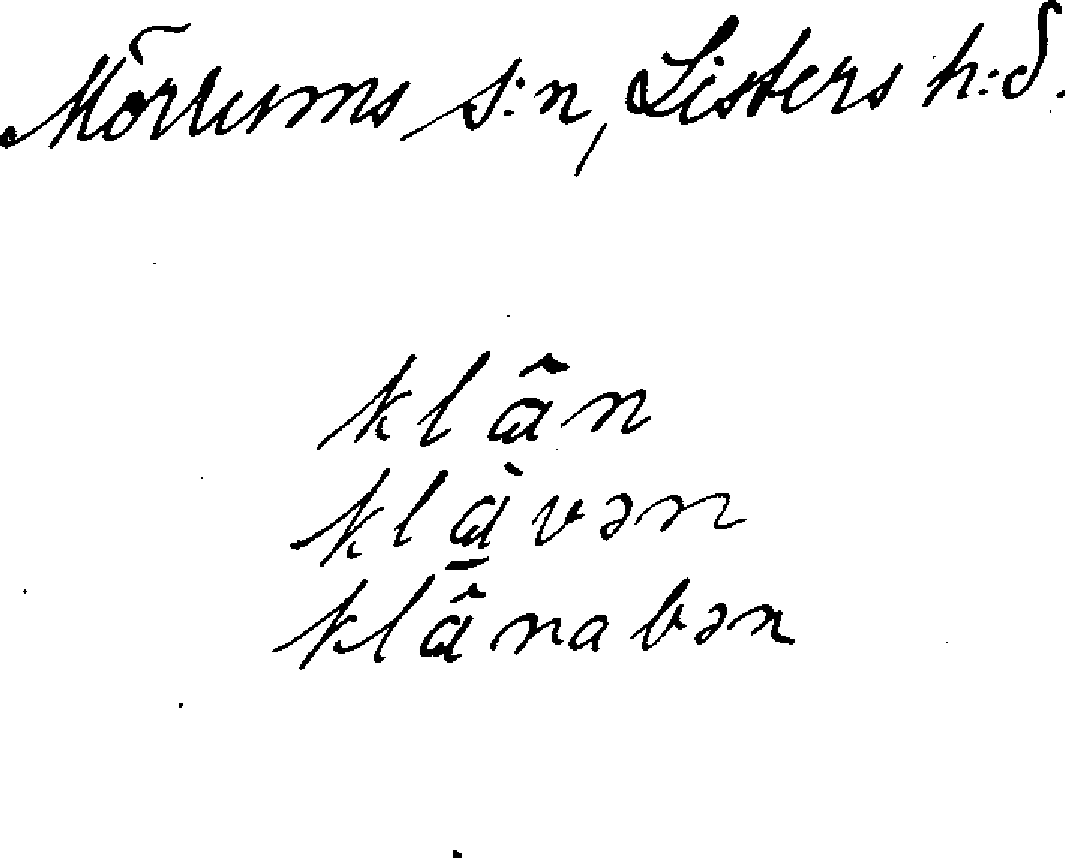 Mörrums s:n, Listers h:d.
klɑ̂n
klɑ̀vən
klɑ̂nabən